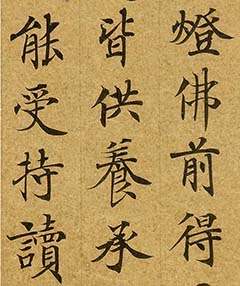 燈佛前得
皆供養承
能受持讀